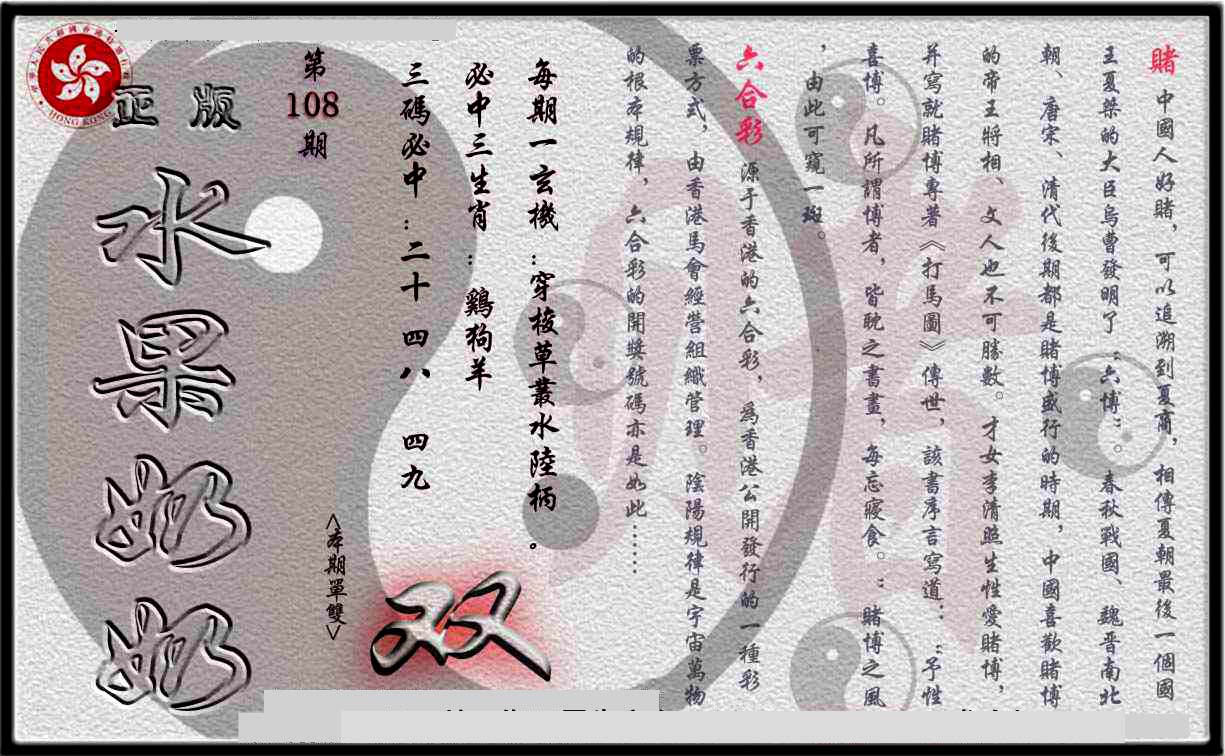 賭 中國人好賭，可以追溯到夏商，相傳夏朝最後一個國
王夏桀的大臣烏曹發明了“六博”。春秋戰國、魏晉南北
朝、唐宋、清代後期都是賭博盛行的時期，中國喜歡賭博
的帝王將相、文人也不可勝數。才女李清照生性愛賭博，
并寫就賭博專著《打馬圖》傳世，該書序言寫道：“予性
喜博。凡所謂博者，皆耽之書晝，每忘寢食。”賭博之風
，由此可窺一斑。
六合彩 源于香港的六合彩，為香港公開發行的一種彩
票方式，由香港馬會經營組織管理。陰陽規律是宇宙萬物
的根本規律，六合彩的開獎號碼亦是如此……
每期一玄機：穿梭草叢水陸柄。
必中三生肖：鷄狗羊
三碼必中：二十 四八 四九
第108期
<本期單雙>
双
正版
水果奶奶
HONG KONG